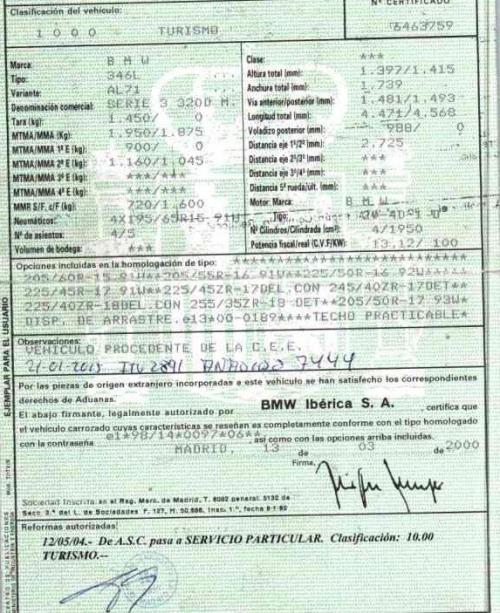 Clasificación del vehículo:
Nº CERTIFICADO
1 0 0 0 TURISMO
6463759
Marca: B M W
Tipo: 346L
Variante: AL71
Denominación comercial: SERIE 3 320D M.
Tara (kg): 1.450/ 0
MTMA/MMA (Kg): 1.950/1.875
MTMA/MMA 1º E (kg): 900/ 0
MTMA/MMA 2º E (kg): 1.160/1.045
MTMA/MMA 3º E (kg): ***/***
MTMA/MMA 4º E (kg): ***/***
MMR S/F, c/F (kg): 720/1.600
Neumáticos: 4X195/65R15 91H
Nº de asientos: 4/5
Volumen de bodega: ***
Clase: ***
Altura total (mm): 1.397/1.415
Anchura total (mm): 1.739
Vía anterior/posterior (mm): 1.481/1.493
Longitud total (mm): 4.471/4.568
Voladizo posterior (mm): 988/ 0
Distancia eje 1º/2º (mm): 2.725
Distancia eje 2º/3º (mm): ***
Distancia eje 3º/4º (mm): ***
Distancia 5ª rueda/últ. (mm): ***
Motor: Marca: B M W
Tipo: 20 4D1
Nº Cilindros/Cilindrada (cm³): 4/1950
Potencia fiscal/real (C.V.F/KW): 13,12/ 100
Opciones incluidas en la homologación de tipo: **************************
205/60R-15 91W**205/55R-16 91W**225/50R-16 92W*****
225/45R-17 91W**225/45ZR-17DEL.CON 245/40ZR-17DET**
225/40ZR-18DEL.CON 255/35ZR-18 DET**205/50R-17 93W*
DISP. DE ARRASTRE.e13*00-0189****TECHO PRACTICABLE*
Observaciones:
VEHICULO PROCEDENTE DE LA C.E.E.
21-01-2015 ITV 2891 7444
Por las piezas de origen extranjero incorporadas a este vehículo se han satisfecho los correspondientes
derechos de Aduanas.
El abajo firmante, legalmente autorizado por BMW Ibérica S. A. , certifica que
el vehículo carrozado cuyas características se reseñan es completamente conforme con el tipo homologado
con la contraseña e1*98/14*0097*06** , así como con las opciones arriba incluidas.
MADRID, 13 de 03 de 2000
Firma,
Sociedad Inscrita en el Reg. Merc. de Madrid, T. 6082 general. 5132 de
Secc. 3.ª del L. de Sociedades F. 127, H. 50.698, Insc. 1.ª, fecha
Reformas autorizadas:
12/05/04.- De A.S.C. pasa a SERVICIO PARTICULAR. Clasificación: 10.00
TURISMO.--
EJEMPLAR PARA EL USUARIO